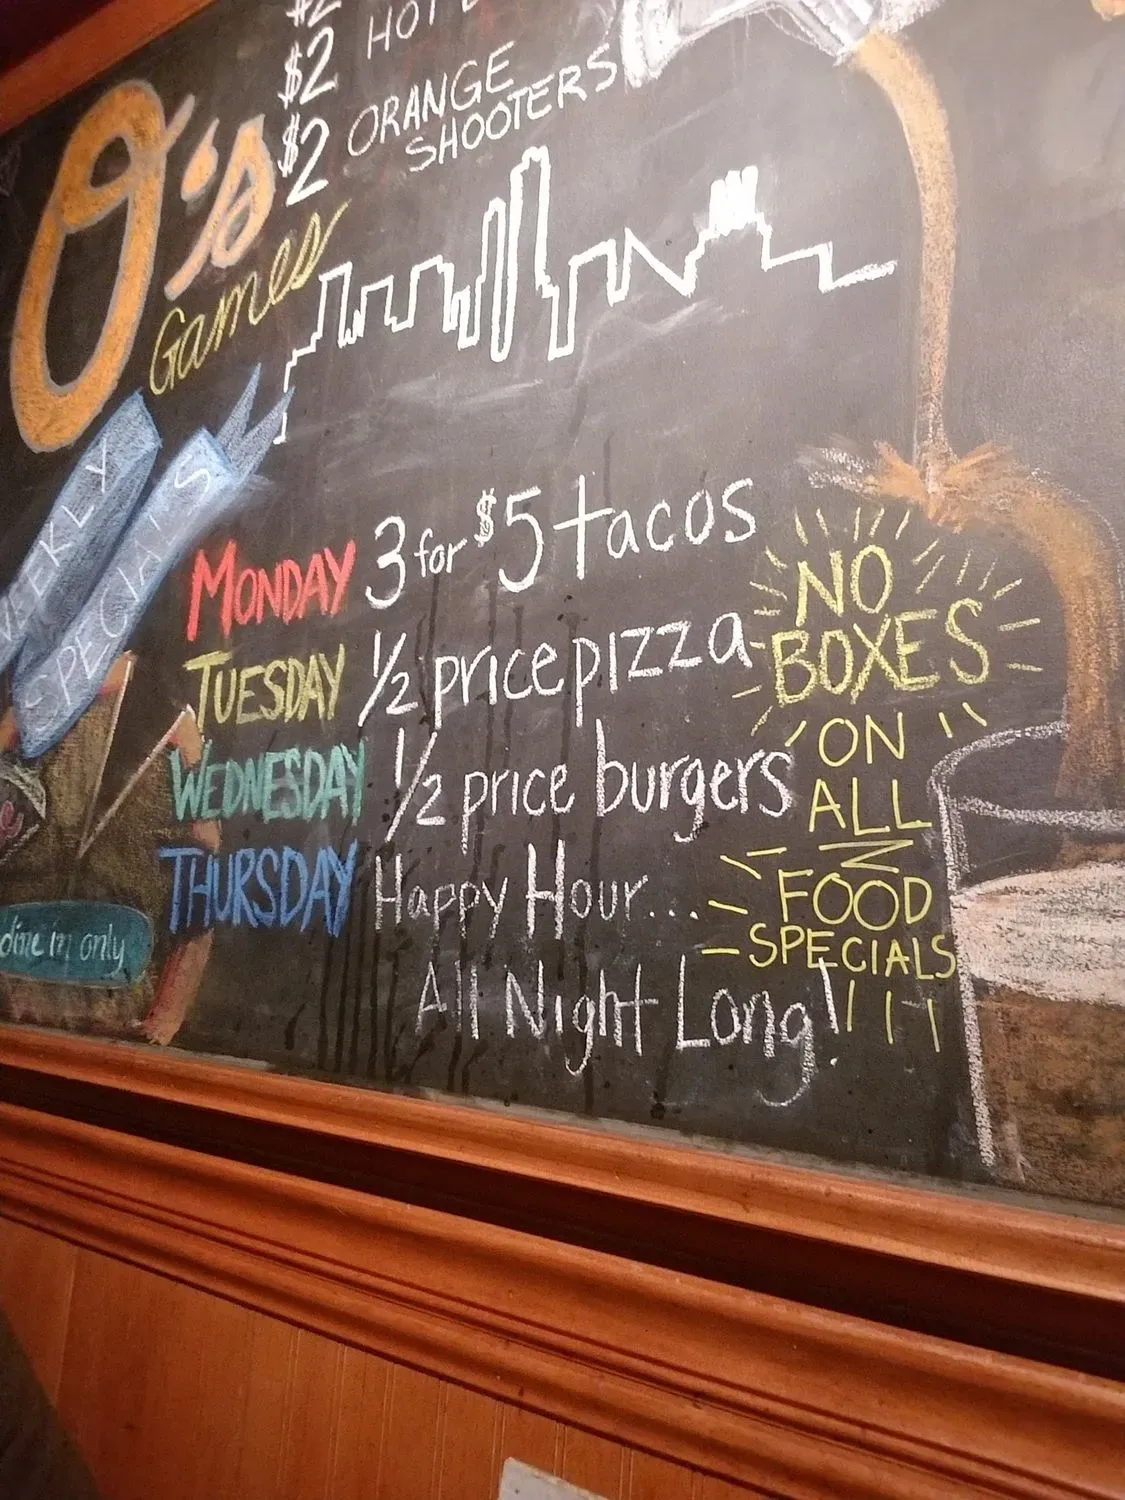 $2
$2 HOT
$2 ORANGE
SHOOTERS
O's
Games
WEEKLY
SPECIALS
MONDAY 3 for $5 tacos
TUESDAY 1/2 price pizza
WEDNESDAY 1/2 price burgers
THURSDAY Happy Hour...
All Night Long!
NO
BOXES
ON
ALL
FOOD
SPECIALS
dine in only